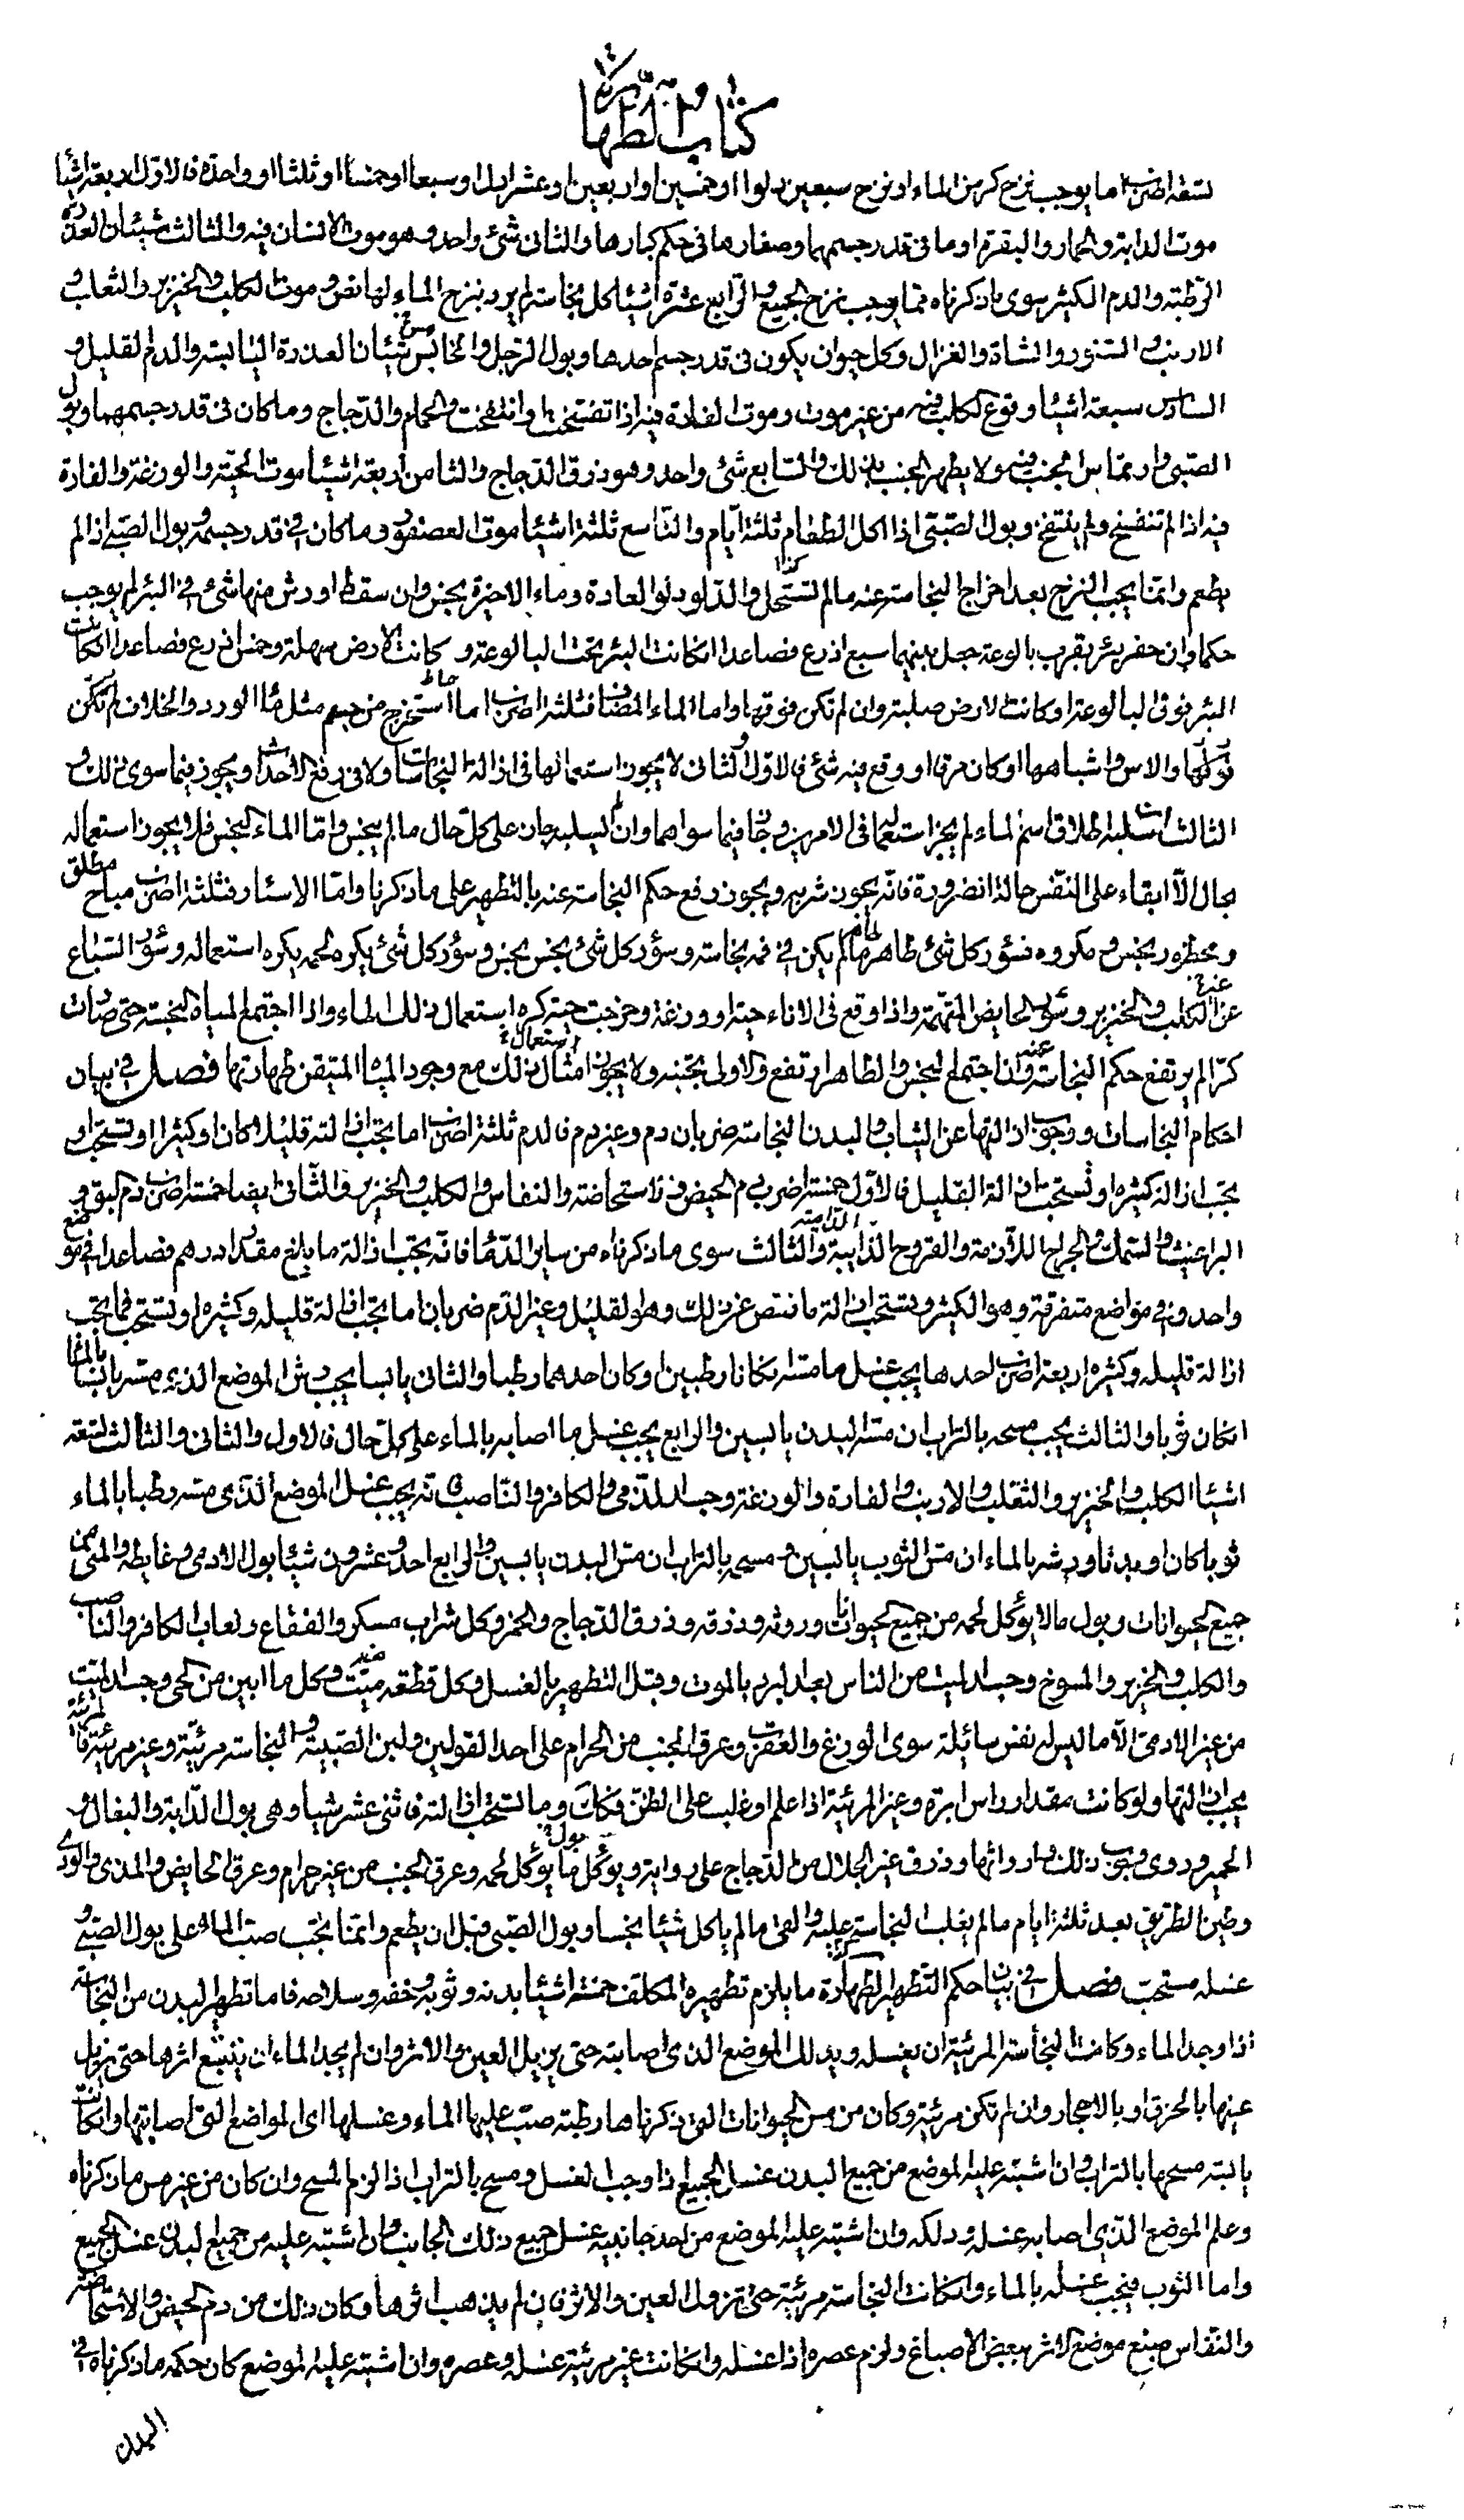 كتاب الطهارة
تسعة اضرب ما يوجب نزح كر من الماء او نزح سبعين دلوا او خمسين او اربعين او عشرا بل او سبعا او خمسا او ثلثا او واحدة فالاول اربعة اشيا
موت الدابة والحمار والبقرة او ما في قدر جسمهما وصغارها في حكم كبارها والثاني شئ واحد وهو موت الانسان فيه والثالث شيئان العذرة
الرطبة والدم الكثير سوى ما ذكرناه مما يوجب نزح الجميع والرابع عشرة اشيا كل نجاسة لم يرد بنزح الماء لها نص وموت الكلب والخنزير والثعلب و
الارنب والسنور والشاة والغزال وكل حيوان يكون في قدر جسم احدها وبول الرجل والخامس شيئان العذرة اليابسة والدم القليل و
السادس سبعة اشيا وقوع الكلب فيه من غير موت وموت الفارة فيه اذا تفسخت او انتفخت والحمام والدجاج وما كان في قدر جسمهما وبول
الصبي وارتماس الجنب فيه ولا يطهر الجنب بذلك والسابع شئ واحد وهو ذرق الدجاج والثامن اربعة اشيا موت الحية والوزغة والفارة
فيه اذا لم تنفسخ ولم ينتفخ وبول الصبي اذا اكل الطعام ثلثة ايام والتاسع ثلثة اشيا موت العصفور وما كان في قدر جسمه وبول الصبي اذا لم
يطعم وانما يجب النزح بعد اخراج النجاسة عنه ما لم تستحل والدلو دلو العادة وماء الاخيرة نجس وان سقط او رش منها شئ في البئر لم يوجب
حكما وان حفر بئر بقرب بالوعة جعل بينهما سبع اذرع فصاعدا ان كانت البئر تحت البالوعة وكانت الارض سهلة وخمس اذرع فصاعدا ان كانت
البئر فوق البالوعة او كانت الارض صلبة وان لم تكن فوقها واما الماء المضاف فثلثة اضرب اما استخرج من جسم مثل ماء الورد والخلاف
والاس واشباهها او كان مرقا او وقع فيه شئ فالاول والثاني لا يجوز استعمالها في ازالة النجاسات ولا في رفع الاحداث ويجوز فيما سوى ذلك و
الثالث ان سلبه اطلاق اسم الماء لم يجز استعماله في الامرين وجاز فيما سواهما وان لم يسلبه جاز على كل حال ما لم ينجس واما الماء النجس فلا يجوز استعماله
بحال الا ابقاء على النفس حالة الضرورة فانه يجوز شربه ويجوز رفع حكم النجاسة عنه بالتطهير على ما ذكرنا واما الاسئار فثلثة اضرب مباح مطلق
ومحظور نجس ومكروه فسؤر كل شئ طاهر طاهر ما لم يكن في فمه نجاسة وسؤر كل شئ نجس نجس وسؤر كل شئ يكره لحمه يكره استعماله وسؤر السباع
غير الكلب والخنزير وسؤر الحايض المتهمة واذا وقع في الاناء حية او وزغة وخرجت حية كره استعمال ذلك الماء واذا اجتمع المياه النجسة حتى صارت
كرا لم يرتفع حكم النجاسة عنه وان اجتمع النجس والطاهر ارتفع والاولى تجنبه ولا يجوز استعمال امثال ذلك مع وجود المياه المتيقن طهارتها فصل في بيان
احكام النجاسات ووجوب ازالتها عن الثياب والبدن النجاسة ضربان دم وغير دم فالدم ثلثة اضرب اما يجب ازالته قليلا كان او كثيرا او تستحب او
يجب ازالة كثيره او تستحب ازالة القليل فالاول خمسة اضرب دم الحيض والاستحاضة والنفاس والكلب والخنزير والثاني ايضا خمسة اضرب دم البق و
البراغيث والسمك والجراح اللازمة والقروح الدامية والثالث سوى ما ذكرناه من ساير الدماء فانه يجب ازالة ما بلغ مقدار درهم فصاعدا في موضع
واحد وفي مواضع متفرقة وهو الكثير ويستحب ازالة ما نقص عن ذلك وهو القليل وغير الدم ضربان اما يجب ازالة قليله وكثيره او يستحب فما يجب
ازالة قليله وكثيره اربعة اضرب احدها يجب غسل ما مسه ان كانا رطبين او كان احدهما رطبا والثاني يابسا يجب رش الموضع الذي مسه يابسا بالماء
ان كان ثوبا والثالث يجب مسحه بالتراب ان مس البدن يابسين والرابع يجب غسل ما اصابه بالماء على كل حال فالاول والثاني والثالث تسعة
اشيا الكلب والخنزير والثعلب والارنب والفارة والوزغة وجسد الذمي والكافر والناصب فانه يجب غسل الموضع الذي مسه رطبا بالماء
ثوبا كان او بدنا ورشه بالماء ان مس الثوب يابسين ومسحه بالتراب ان مس البدن يابسين والرابع احد وعشرون شيئا بول الادمي وغايطه والمني من
جميع الحيوانات وبول ما لا يؤكل لحمه من جميع الحيوانات وروثه وذرقه وذرق الدجاج والخمر وكل شراب مسكر والفقاع ولعاب الكافر والناصب
والكلب والخنزير والمسوخ وجسد الميت من الناس بعد البرد بالموت وقبل التطهير بالغسل وكل قطعة ميت وكل ما ابين من الحي وجسد الميت
من غير الادمي الا ما ليس له نفس سائلة سوى الوزغ والعقرب وعرق الجنب من الحرام على احد القولين ولبن الصبية والنجاسة مرئية وغير مرئية فالمرئية
يجب ازالتها ولو كانت مقدار راس ابرة وغير المرئية اذا علم او غلب على الظن وما تستحب ازالته فاثنى عشر شيا وهي بول الدابة والبغال و
الحمير وروي وجوب ذلك وارواثها وذرق غير الجلال من الدجاج على رواية وبول ما يؤكل لحمه وعرق الجنب من غير حرام وعرق الحايض والمذي والودي
وطين الطريق بعد ثلثة ايام ما لم يغلب النجاسة عليه والقئ ما لم ياكل شيئا نجسا وبول الصبي قبل ان يطعم وانما يجب صب الماء على بول الصبي و
غسله مستحب فصل في بيان حكم التطهير الطهارة ما يلزم تطهيره المكلف خمسة اشيا بدنه وثوبه وخفه وسلاحه فاما تطهير البدن من النجاسة
اذا وجد الماء وكانت النجاسة المرئية ان يغسله ويدلك الموضع الذي اصابته حتى يزيل العين والاثر وان لم يجد الماء ان يتتبع اثرها حتى يزيل
عينها بالخرق او بالاحجار وان لم تكن مرئية وكان من مس الحيوانات التي ذكرناها رطبة صب عليها الماء وغسلها اي المواضع التي اصابتها وان كانت
يابسة مسحها بالتراب وان اشتبه عليه الموضع من جميع البدن غسل الجميع اذا وجب الغسل ومسح بالتراب اذا لزم المسح وان كان من غير مس ما ذكرناه
وعلم الموضع الذي اصابه غسله ودلكه وان اشتبه عليه الموضع من احد جانبيه غسل جميع ذلك الجانب وان اشتبه عليه من جميع البدن غسل الجميع
واما الثوب فيجب غسله بالماء وان كانت النجاسة مرئية حتى تزول العين والاثر فان لم يذهب اثرها وكان ذلك من دم الحيض والاستحاضة
والنفاس صبغ موضع الاثر ببعض الاصباغ ولزم عصره اذا غسله وان كانت غير مرئية غسله وعصره وان اشتبه عليه الموضع كان حكمه ما ذكرناه في
البدن